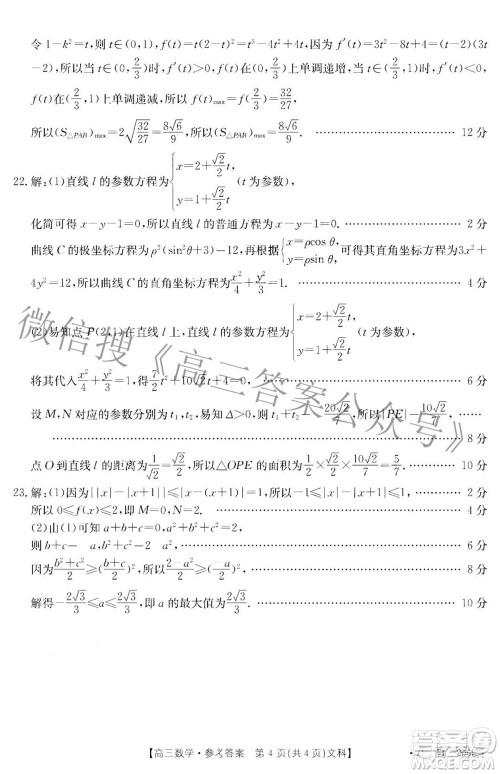 令1-k²=t,则t∈(0,1),f(t)=t(2-t)²=t³-4t²+4t,因为f′(t)=3t²-8t+4=(t-2)(3t-
2),所以当t∈(0,2/3)时,f′(t)>0,f(t)在(0,2/3)上单调递增,当t∈(2/3,1)时,f′(t)<0,
f(t)在(2/3,1)上单调递减,所以f(t)max=f(2/3)=32/27,
所以(S△PAB)max=2√(32/27)=8√6/9. 12分
22.解:(1)直线l的参数方程为{x=2+√2/2 t, y=1+√2/2 t,
化简可得x-y-1=0,所以直线l的普通方程为x-y-1=0. 2分
曲线C的极坐标方程为ρ²(sin²θ+3)-12,再根据{x=ρcos θ, y=ρsin θ,可得曲线C的方程为3x²+
4y²=12,所以曲线C的直角坐标方程为x²/4+y²/3=1. 4分
(2)易知点P(2,1)在直线l上,直线l的参数方程为{x=2+√2/2 t, y=1+√2/2 t (t为参数),
将其代入x²/4+y²/3=1,得7/2 t²+10√2 t+8=0. 6分
设M,N对应的参数分别为t₁,t₂,易知Δ>0,则t₁+t₂=-20√2/7,所以|PE|=10√2/7.
8分
点O到直线l的距离为1/√2=√2/2,所以△OPE的面积为1/2×√2/2×10√2/7=5/7. 10分
23.解:(1)因为||x|-|x+1||≤|x-(x+1)|=1, 2分
所以0≤f(x)≤2,即M=0,N=2. 4分
(2)由(1)可知a+b+c=0,a²+b²+c²=2,
则b+c- a,b²+c²=2-a². 6分
因为(b²+c²)/2≥((b+c)/2)²,所以(2-a²)/2≥(-a/2)², 8分
解得-2√3/3≤a≤2√3/3,即a的最大值为2√3/3. 10分
微信搜《高三答案公众号》
【高三数学·参考答案 第4页(共4页)文科】